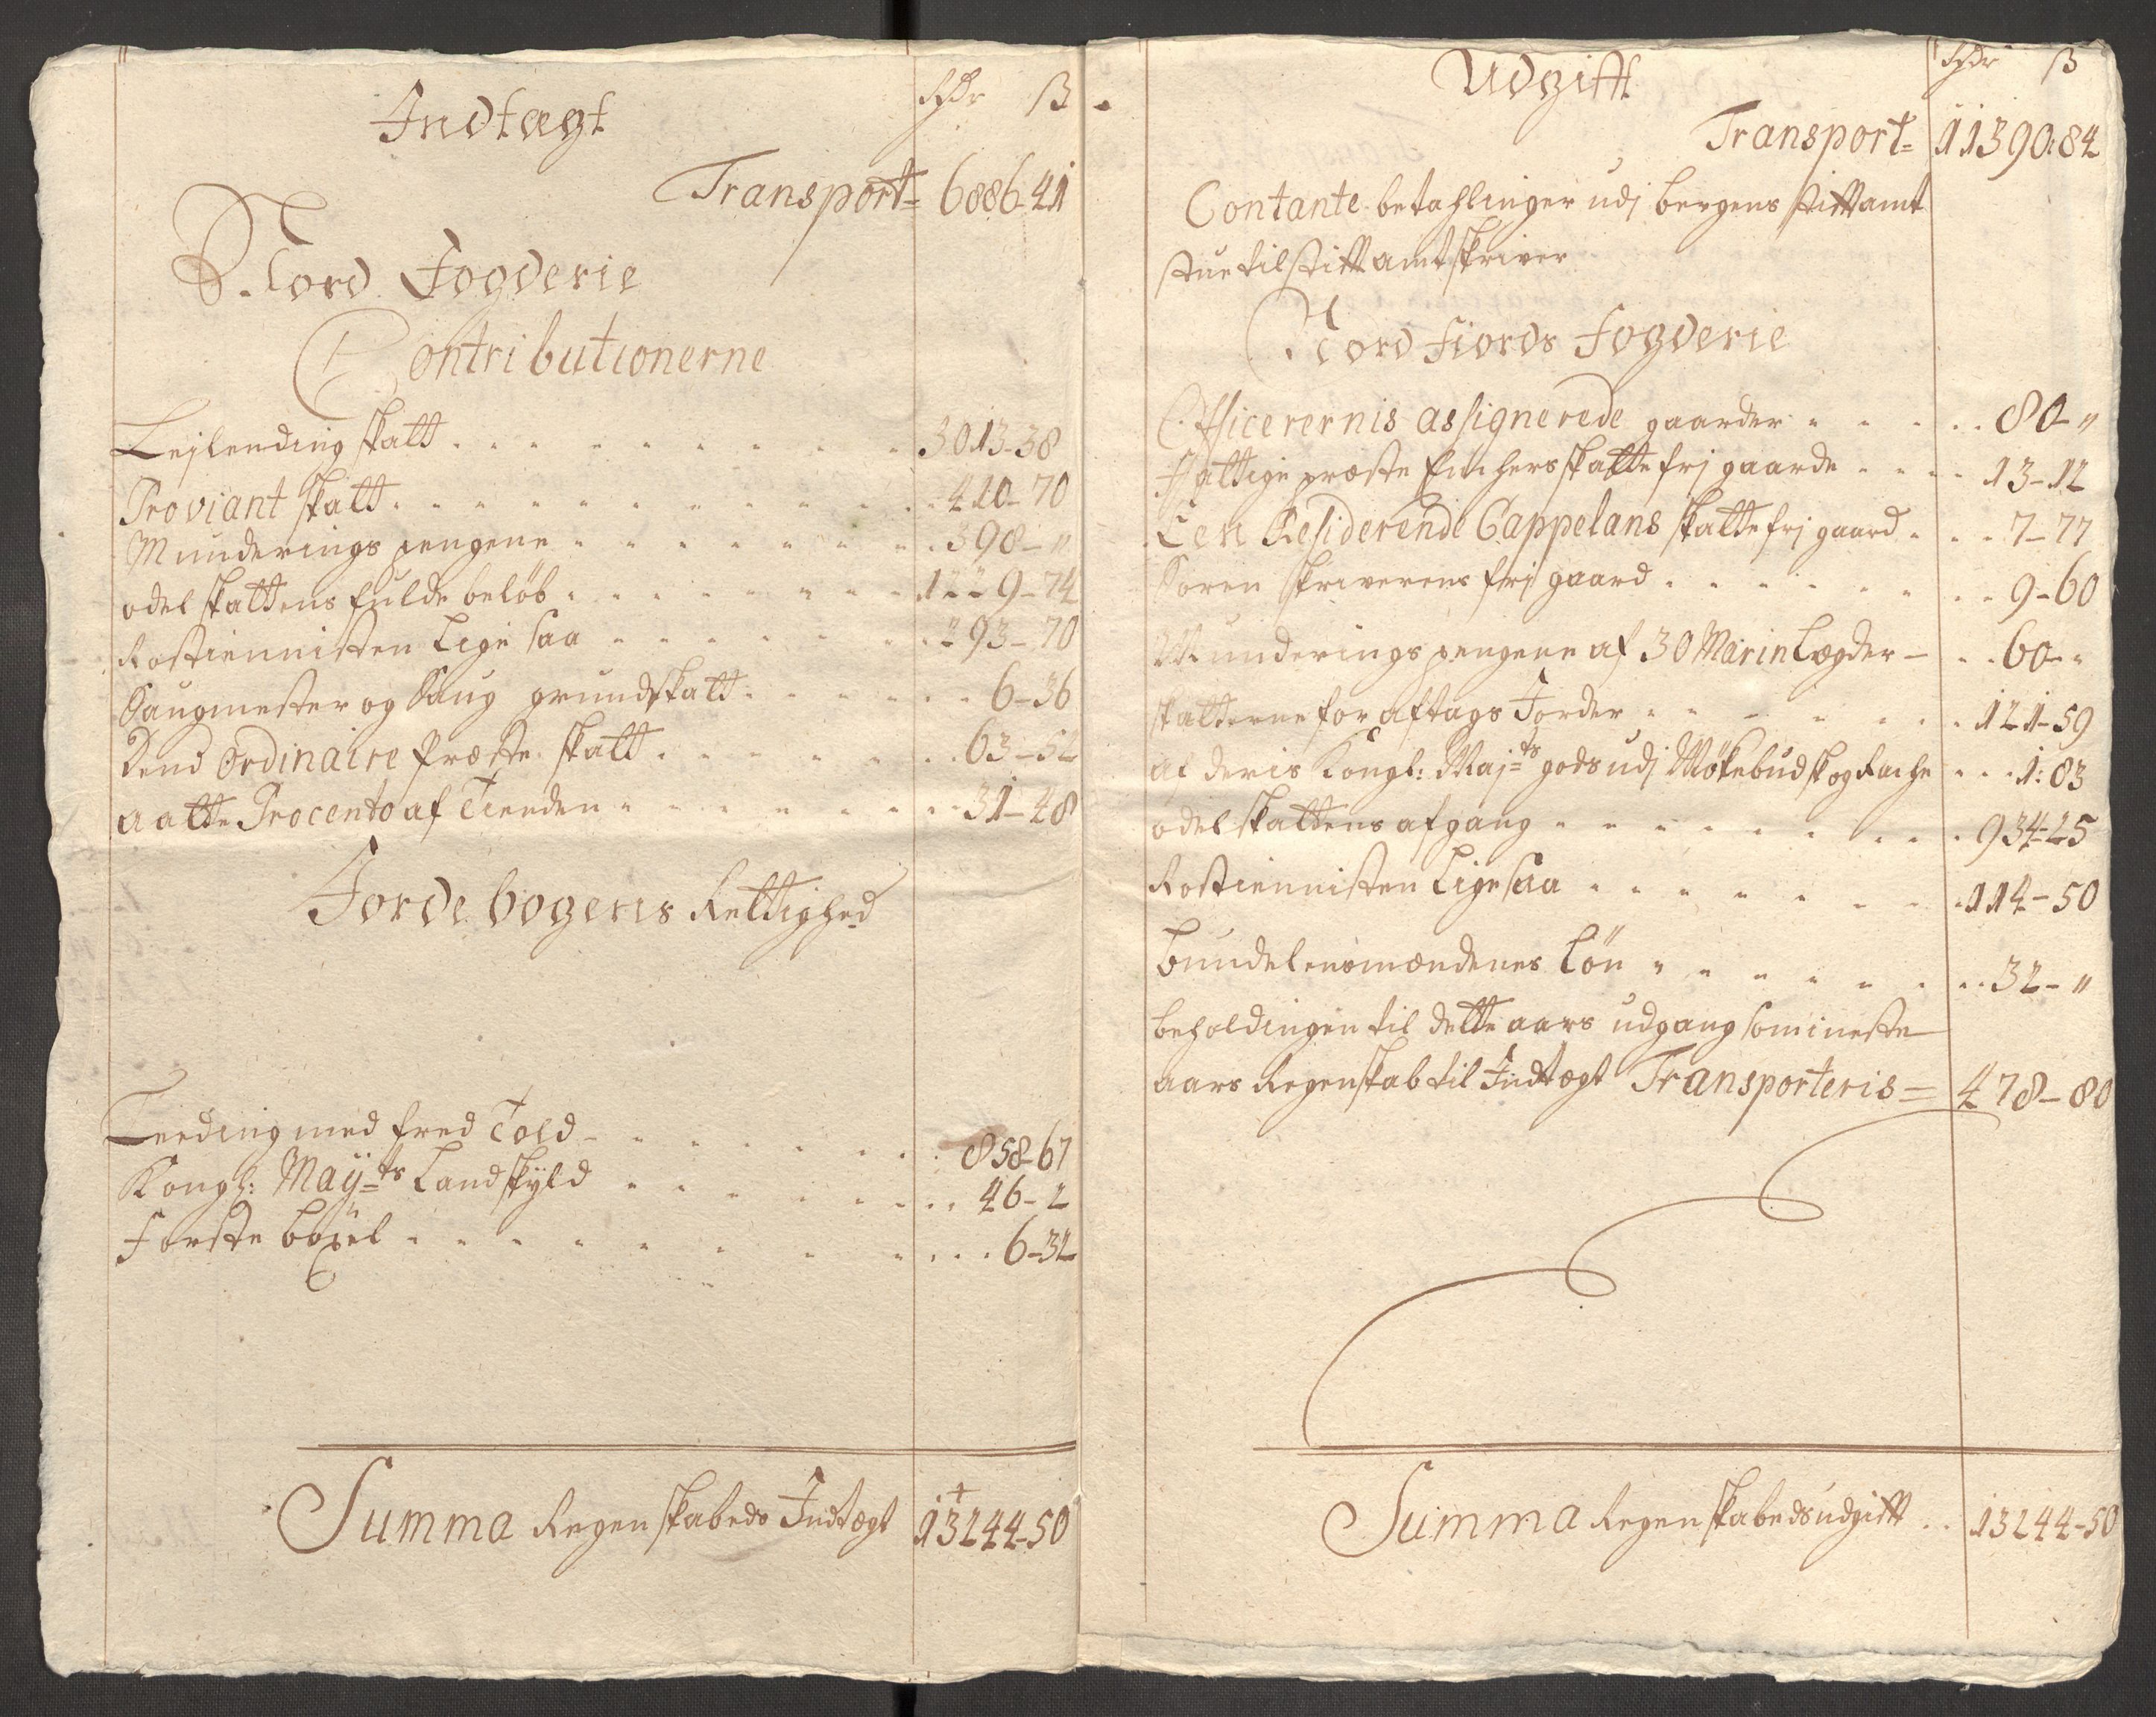 Indtægt Rdr ß
Transport= 6886-41
Nord Fogderie
Contributionerne
Lejlending skatt 3013-38
Proviant skatt 410-70
Munderings pengene 398-"
odel skattens fulde beløb 1229-74
Rostiennisten Lige saa 293-70
Saugmester og Saug grundskatt 6-36
Dend Ordinaire Præste skatt 63-52
aatte Procento af Tienden 31-48
Jordebogens Rettighed
Leeding med fred Told 858-67
Kongl: Maÿ=ts Landskyld 46-2
Første böxel 6-32
Summa Regenskabeds Indtægt 13244-50
Udgift Rdr ß
Transport= 11390:84
Contante betahlinger udj bergens stiftamt
stue til stiftamtskriver
Nordfiords Fogderie
Officerernis assignerede gaarder 80-"
Fattige præste Enchers skattefrj gaarde 13-12
Een Residerende Cappelans skattefrj gaard 7-77
Soren skriverens frj gaard 9-60
Munderings pengene af 30 Marin Lægder 60-"
skatterne for aftags Jorder 121-59
af deris Kongl: Maj=ts gods udj 1:83
odelskattens afgang 934-25
Rostiennisten Ligesaa 114-50
bundelensmændenes Lön 32-"
beholdingen til dette aars udgang som i neste
aars Regenskab til Indtægt Transporteris= 478-80
Summa Regenskabeds udgift 13244-50